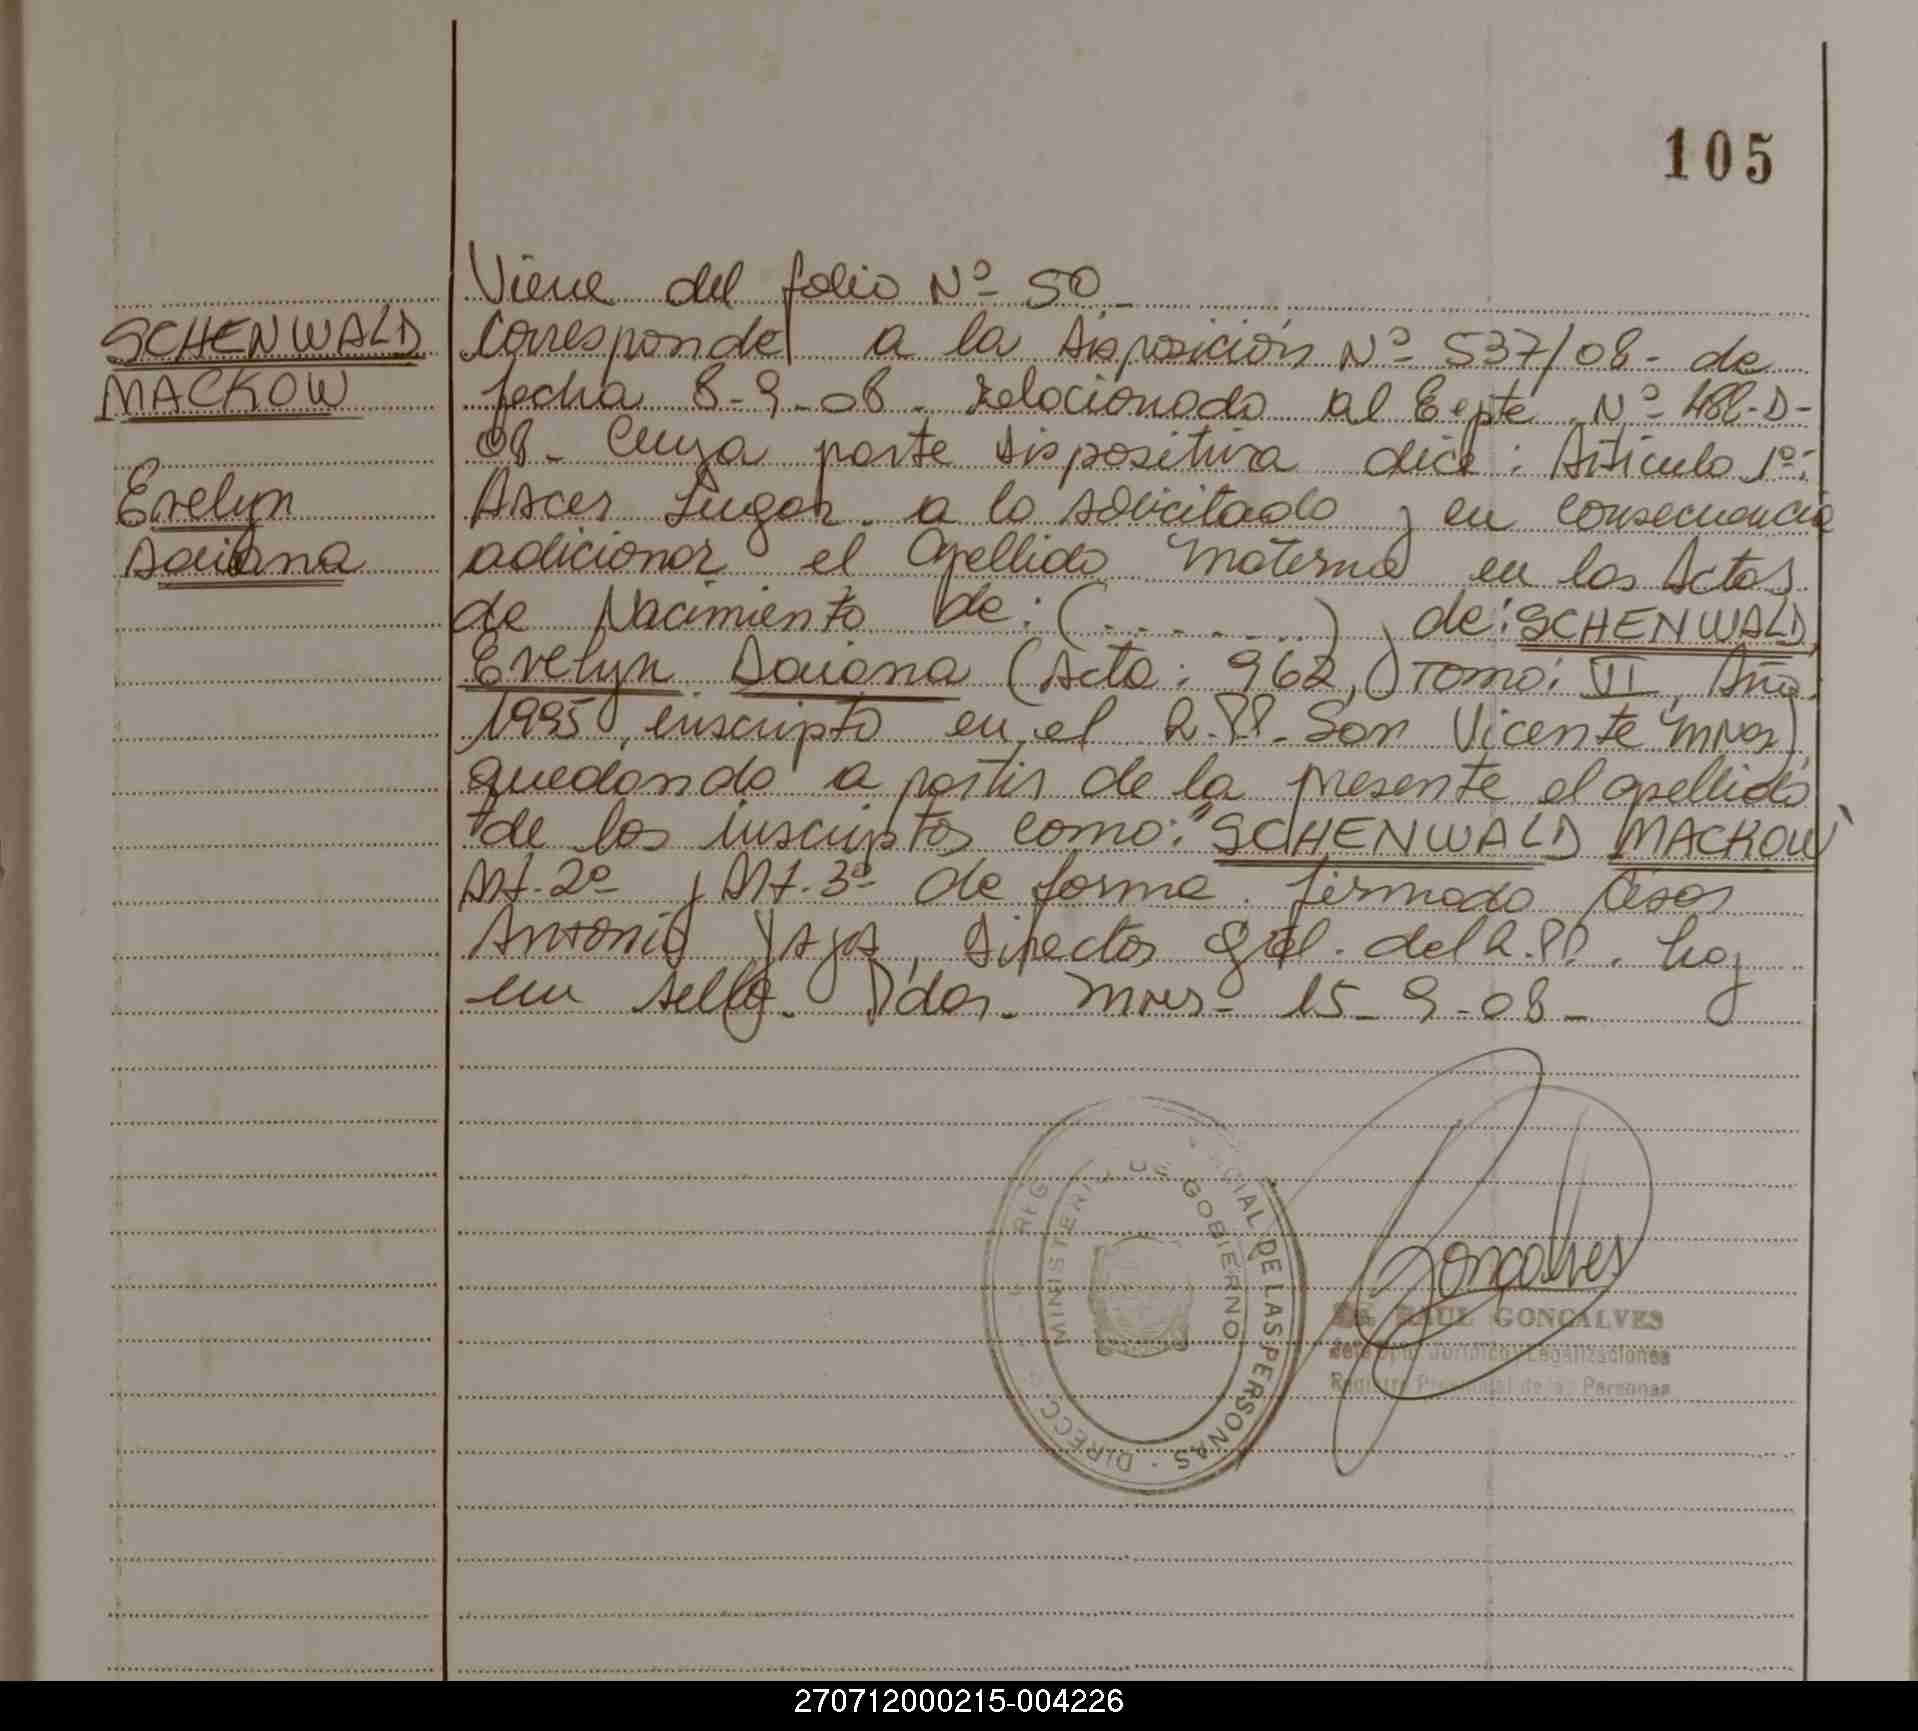 105
Viene del folio Nº 50.
SCHENWALD
MACKOW
Evelyn
Daiana
Corresponde a la Disposición Nº 537/08 - de
fecha 8-9-08. Relacionado al Expte. Nº 482-D-
08 - Cuya parte dispositiva dice: Artículo 1º:
Hacer Lugar a lo solicitado y en consecuencia
adicionar el apellido materno en las Actas
de Nacimiento de: (........) y de: SCHENWALD,
Evelyn Daiana (Acta: 962, Tomo: VI, Año:
1995, inscripta en el R.P.P. San Vicente Mnes)
quedando a partir de la presente el apellido
de los inscriptos como: "SCHENWALD MACKOW"
Art. 2º y Art. 3º de forma. Firmado Cesar
Antonio Director Gral. del R.P.P. hay
un sello. Pdas. Mnes - 15-9-08 -
Goncalves
MINISTERIO DE GOBIERNO
DIRECC. REG. DE LAS PERSONAS
RAUL GONCALVES
Jefe Dpto. Jurídico y Legalizaciones
Registro Provincial de las Personas
270712000215-004226